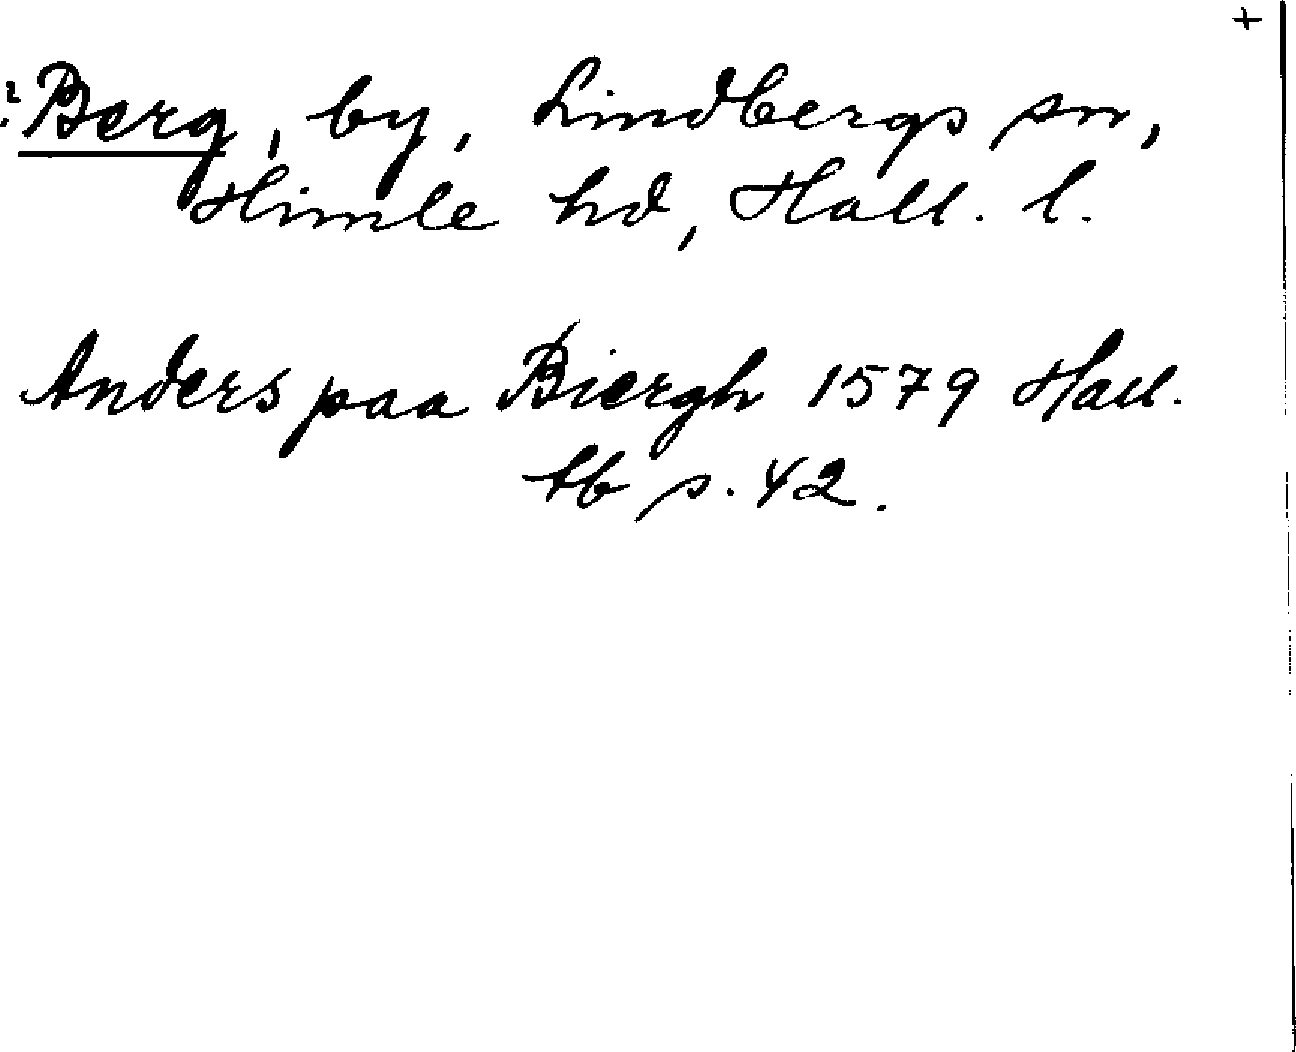 +
?Berg, by, Lindbergs sn,
Himle hd, Hall. l.
Anders paa Biergh 1579 Hall.
tb s. 42.